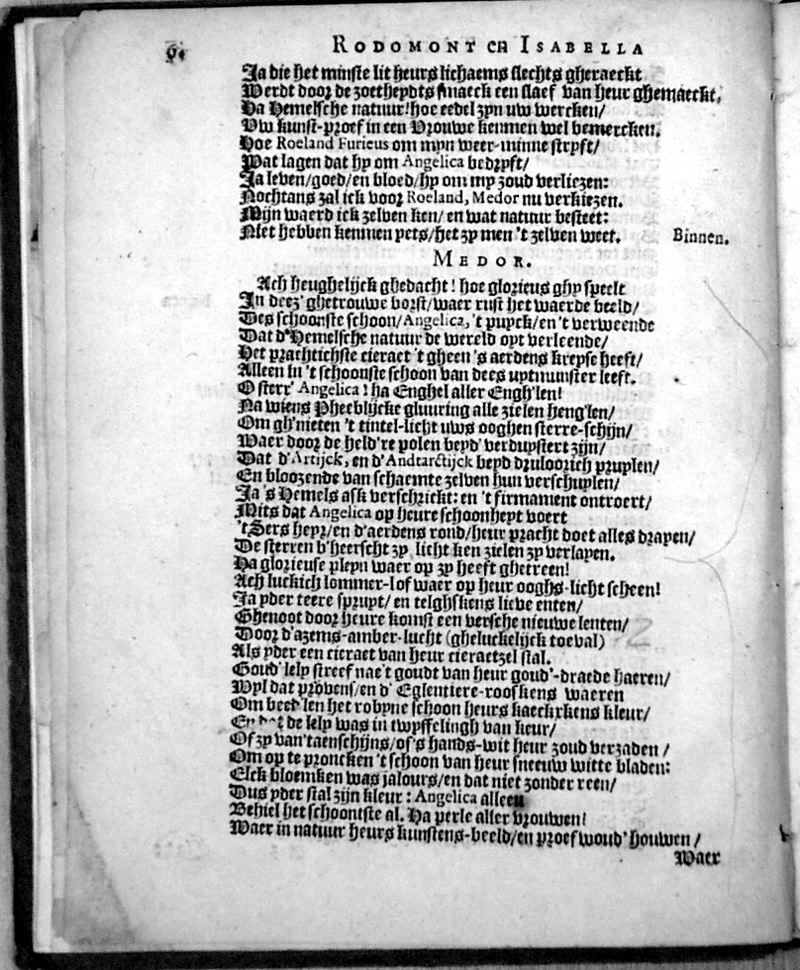 RODOMONT en ISABELLA
Ja die het minste lit heurs lichaems slechts gheraeckt
Werdt door de zoetheydts smaeck een slaef van heur ghemaeckt,
Ha Hemelsche natuur! hoe eedel zyn uw wercken/
Uw kunst-proef in een Vrouwe kenmen wel bemercken.
Hoe Roeland Furieus om myn weer-minne strijft/
Wat lagen dat hy om Angelica bedryft/
Ja leven/goed/en bloed/hy om my zoud verliezen:
Nochtans zal ick voor Roeland, Medor nu verkiezen.
Mijn waerd ick zelven ken/ en wat natuur besteet:
Niet hebben kenmen yets/het zy men 't zelven weet. Binnen.
MEDOR.
Ach heughelijck ghedacht! hoe glorieus ghy speelt
In deez' ghetrouwe borst/waer rust het waerde beeld/
Des schoonste schoon/Angelica, 't puyck/en 't verweende
Dat d'Hemelsche natuur de wereld oyt verleende/
Het prachtichste cieraet 't gheen 's aerdens kreyse heeft/
Alleen in 't schoonste schoon van dees uytmunster leeft.
O sterr' Angelica! ha Enghel aller Engh'len!
Na wiens Pheeblijcke gluuring alle zielen heng'len/
Om gh'nieten 't tintel-licht uws ooghen sterre-schijn/
Waer door de held're polen beyd' verduystert zijn/
Dat d'Artijck, en d'Andtarctijck beyd druloorich pruylen/
En bloozende van schaemte zelven hun verschuylen/
Ja 's Hemels ask verschrickt: en 't firmament ontroert/
Mits dat Angelica op heure schoonheyt voert
't Sers heyr/en d'aerdens rond/heur pracht doet alles drayen/
De sterren b'heerscht zy, licht ken zielen zy verlayen.
Ha glorieuse pleyn waer op zy heeft ghetreen!
Ach luckich lommer-lof waer op heur ooghs-licht scheen!
Ja yder teere spruyt/ en telghskens lieve enten/
Ghenoot door heure komst een versche nieuwe lenten/
Door d'azems-amber-lucht (gheluckelijck toeval)
Als yder een cieraet van heur cieraetzel stal.
Goud' lely streef nae't goudt van heur goud'-draede haeren/
Wyl dat provens/en d' Eglentiere-rooskens waeren
Om beed'len het robyne schoon heurs kaeckxkens kleur/
En dat de lely was in twyffelingh van keur/
Of zy van'taenschijns/of's hands-wit heur zoud verzaden/
Om op te proncken 't schoon van heur sneeuw witte bladen:
Elck bloemken was jalours/en dat niet zonder reen/
Dus yder stal zijn kleur: Angelica alleen
Behiel het schoontste al. Ha perle aller vrouwen!
Waer in natuur heurs kunstens-beeld/en proef woud' houwen/
Waer